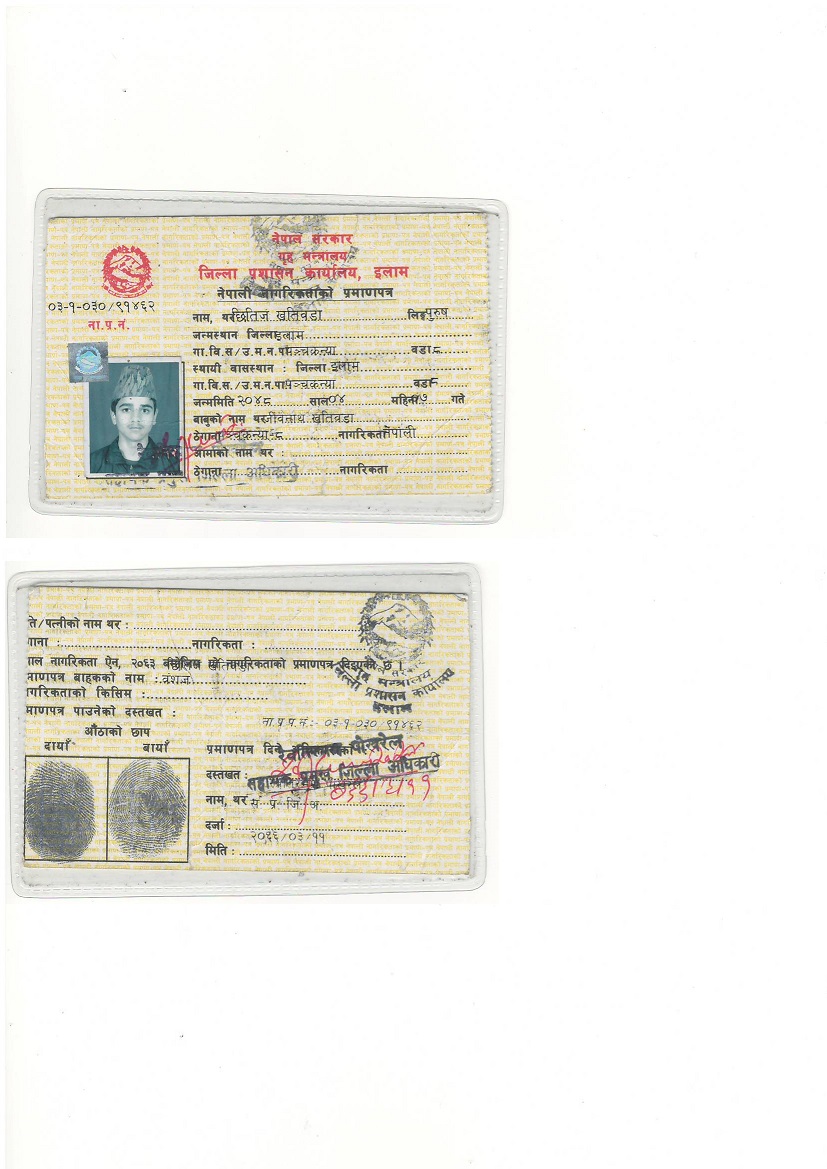 नेपाल सरकार
गृह मन्त्रालय
जिल्ला प्रशासन कार्यालय, इलाम
नेपाली नागरिकताको प्रमाणपत्र
०३-१-०३०/९१४६२
ना.प्र.नं.
नाम, थर छितिज खतिवडा लिङ्ग पुरुष
जन्मस्थान जिल्ला इलाम
गा.वि.स/उ.म.न.पा पञ्चकन्या वडा ८
स्थायी वासस्थान : जिल्ला इलाम
गा.वि.स/उ.म.न.पा पञ्चकन्या वडा ८
जन्ममिति २०४८ साल ०४ महिना गते
बाबुको नाम थर जीवनाथ खतिवडा
ठेगाना पञ्चकन्या-८ नागरिकता नेपाली
आमाको नाम थर :
ठेगाना नागरिकता
जिल्ला अधिकारी
ति/पत्नीको नाम थर :
गाना : नागरिकता :
पाल नागरिकता ऐन, २०६३ बमोजिम यो नागरिकताको प्रमाणपत्र दिइएको छ ।
माणपत्र बाहकको नाम :
गरिकताको किसिम : वंशज
माणपत्र पाउनेको दस्तखत :
गृह मन्त्रालय
जिल्ला प्रशासन कार्यालय
इलाम
ना.प्र.प.नं.:- ०३-१-०३०/९१४६२
औंठाको छाप
दायाँ बायाँ
प्रमाणपत्र दिने
पोखरेल
दस्तखत :
सहायक प्रमुख जिल्ला अधिकारी
नाम, थर : स. प्र. जि. अ.
दर्जा :
२०६६/०३/११
मिति :